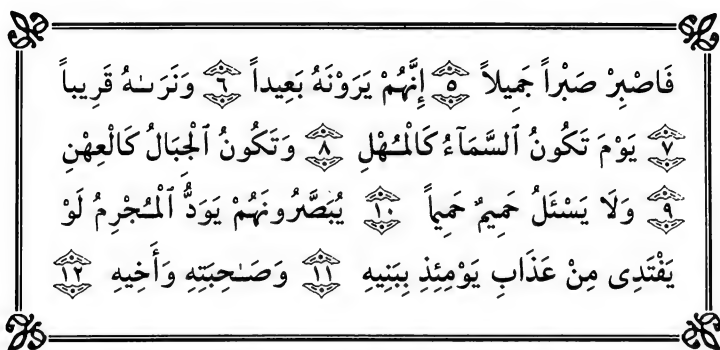 فَاصْبِرْ صَبْراً جَمِيلاً ٥ إِنَّهُمْ يَرَوْنَهُ بَعِيداً ٦ وَنَرَىٰهُ قَرِيباً
٧ يَوْمَ تَكُونُ ٱلسَّمَآءُ كَالْمُهْلِ ٨ وَتَكُونُ ٱلْجِبَالُ كَالْعِهْنِ
٩ وَلَا يَسْئَلُ حَمِيمٌ حَمِيماً ١٠ يُبَصَّرُونَهُمْ يَوَدُّ ٱلْمُجْرِمُ لَوْ
يَفْتَدِى مِنْ عَذَابِ يَوْمِئِذٍ بِبَنِيهِ ١١ وَصَـٰحِبَتِهِ وَأَخِيهِ ١٢